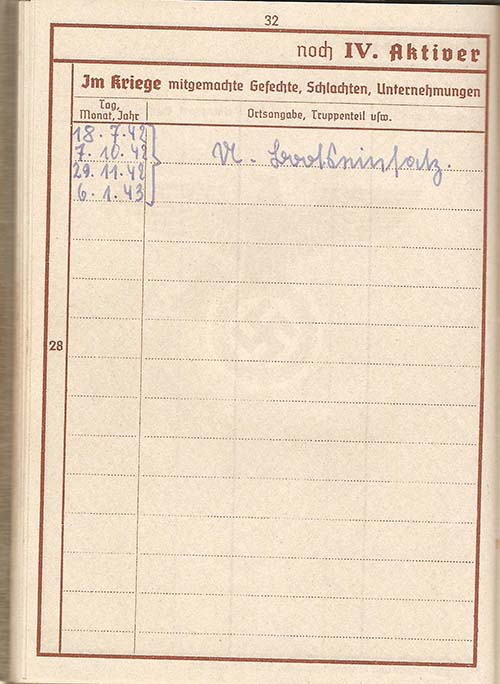 32
noch IV. Aktiver
Im Kriege mitgemachte Gefechte, Schlachten, Unternehmungen
Tag, Monat, Jahr
Ortsangabe, Truppenteil usw.
18. 7. 42
7. 10. 42
29. 11. 42
6. 1. 43
U. Bootseinsatz.
28